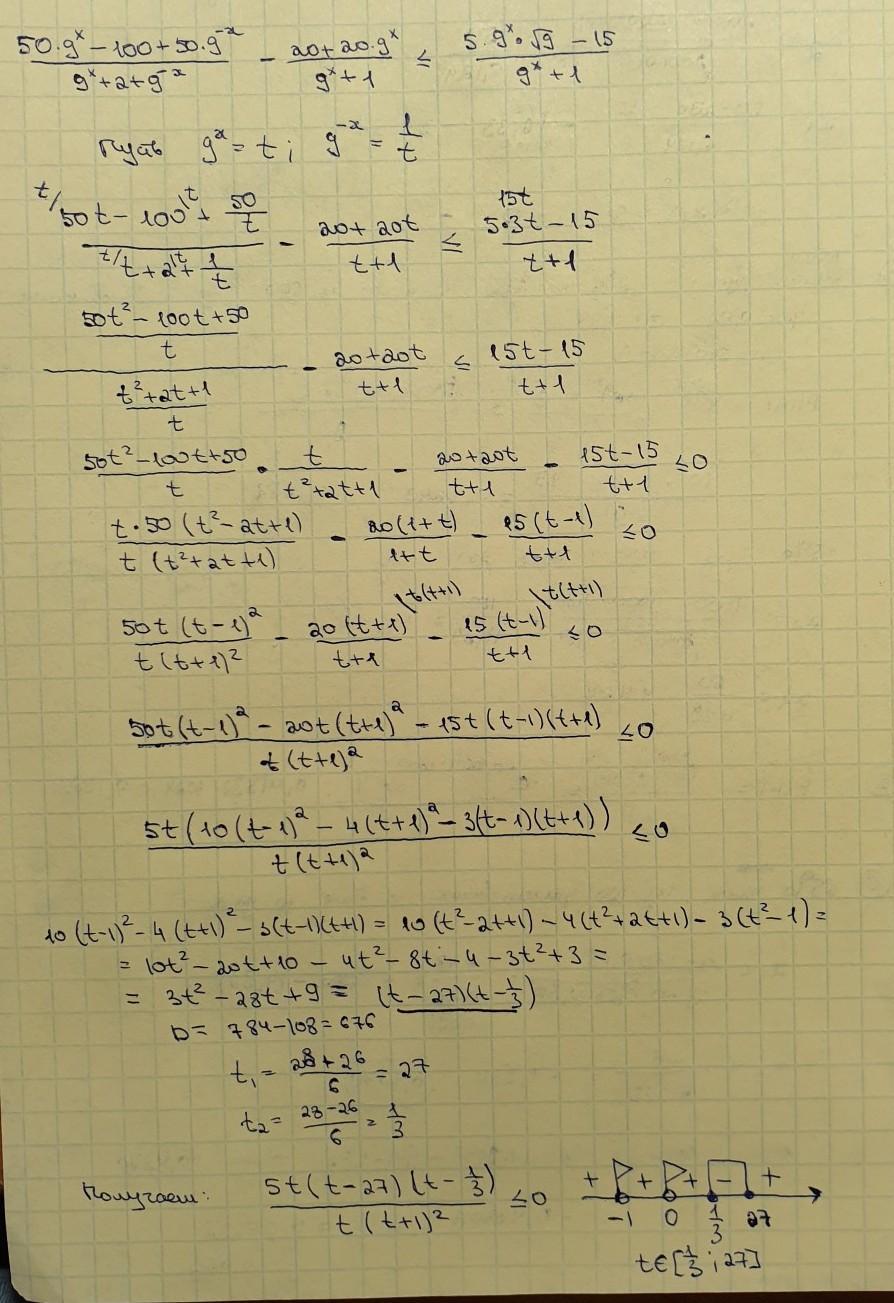 (50·9^x − 100 + 50·9^(−x))/(9^x + 2 + 9^(−x)) − (20 + 20·9^x)/(9^x + 1) ≤ (5·9^x·√9 − 15)/(9^x + 1)
Пусть 9^x = t; 9^(−x) = 1/t
(^t/50t − 100^\t + 50/t)/(^t/t + 2^\t + 1/t) − (20 + 20t)/(t + 1) ≤ (5·3t − 15)/(t + 1) 15t
((50t² − 100t + 50)/t)/((t² + 2t + 1)/t) − (20 + 20t)/(t + 1) ≤ (15t − 15)/(t + 1)
(50t² − 100t + 50)/t · t/(t² + 2t + 1) − (20 + 20t)/(t + 1) − (15t − 15)/(t + 1) ≤ 0
(t·50(t² − 2t + 1))/(t(t² + 2t + 1)) − 20(1 + t)/(1 + t) − 15(t − 1)/(t + 1) ≤ 0
50t(t − 1)²/(t(t + 1)²) − 20(t + 1)^\t(t+1)/(t + 1) − 15(t − 1)^\t(t+1)/(t + 1) ≤ 0
(50t(t − 1)² − 20t(t + 1)² − 15t(t − 1)(t + 1))/(t(t + 1)²) ≤ 0
5t(10(t − 1)² − 4(t + 1)² − 3(t − 1)(t + 1))/(t(t + 1)²) ≤ 0
10(t−1)² − 4(t+1)² − 3(t−1)(t+1) = 10(t² − 2t + 1) − 4(t² + 2t + 1) − 3(t² − 1) =
= 10t² − 20t + 10 − 4t² − 8t − 4 − 3t² + 3 =
= 3t² − 28t + 9 = (t − 27)(t − 1/3)
D = 784 − 108 = 676
t₁ = (28 + 26)/6 = 27
t₂ = (28 − 26)/6 = 1/3
Получаем: 5t(t − 27)(t − 1/3)/(t(t + 1)²) ≤ 0
+ + + − +
−1 0 1/3 27
t ∈ [1/3; 27]